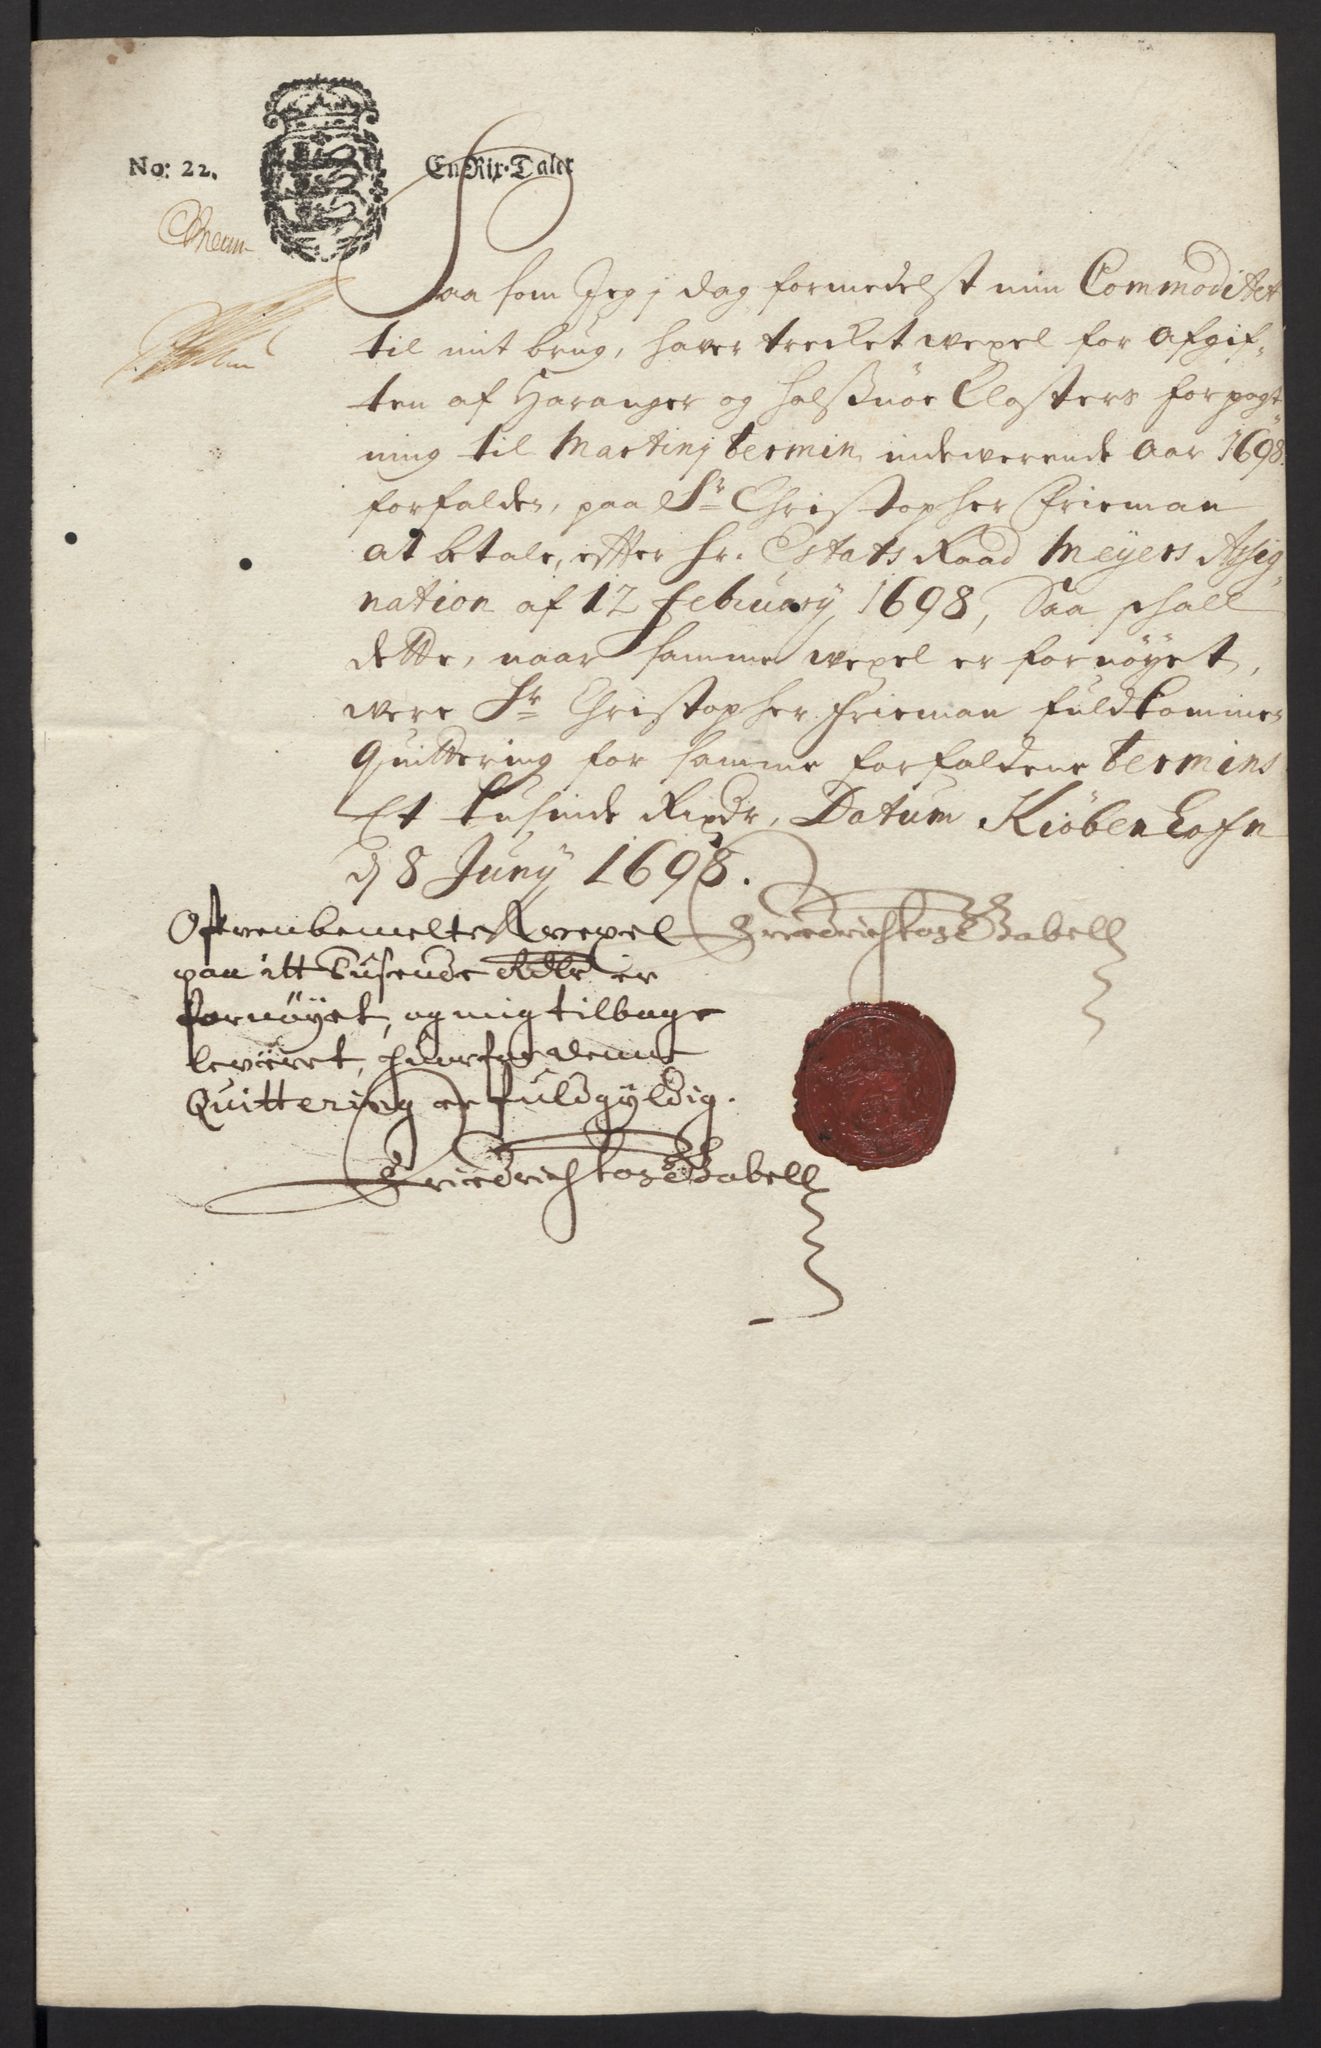 No: 22.
En Rix-Taler
Saa som Jeg j dag formedelst min Commoditet
til mit brug, hafver trecket wexel for afgif-
ten af Haranger og Halsnöe Closters forpagt
ning til Martinj termin indewerende Aar 1698
forfalden, paa Sr Christopher Frieman
at betale, effter Hr. Estats Raad Meyers Assig-
nation af 12 Februarij 1698, Saa schall
dette, naar samme wexel er fornöyet,
were Sr Christopher Frieman fuldkommen
Quittering for samme forfaldene termins
Et tusinde Rixdr, Datum Kiöbenhafn
dj 8 Junij 1698.
Ofwenbemelte wexel
Friedrich Gabell
paa itt Tusende Rdlr er
fornöyet, og mig tilbage
leveret, huorfor denne
Quittering er fuldgyldig.
Friedrich Gabell